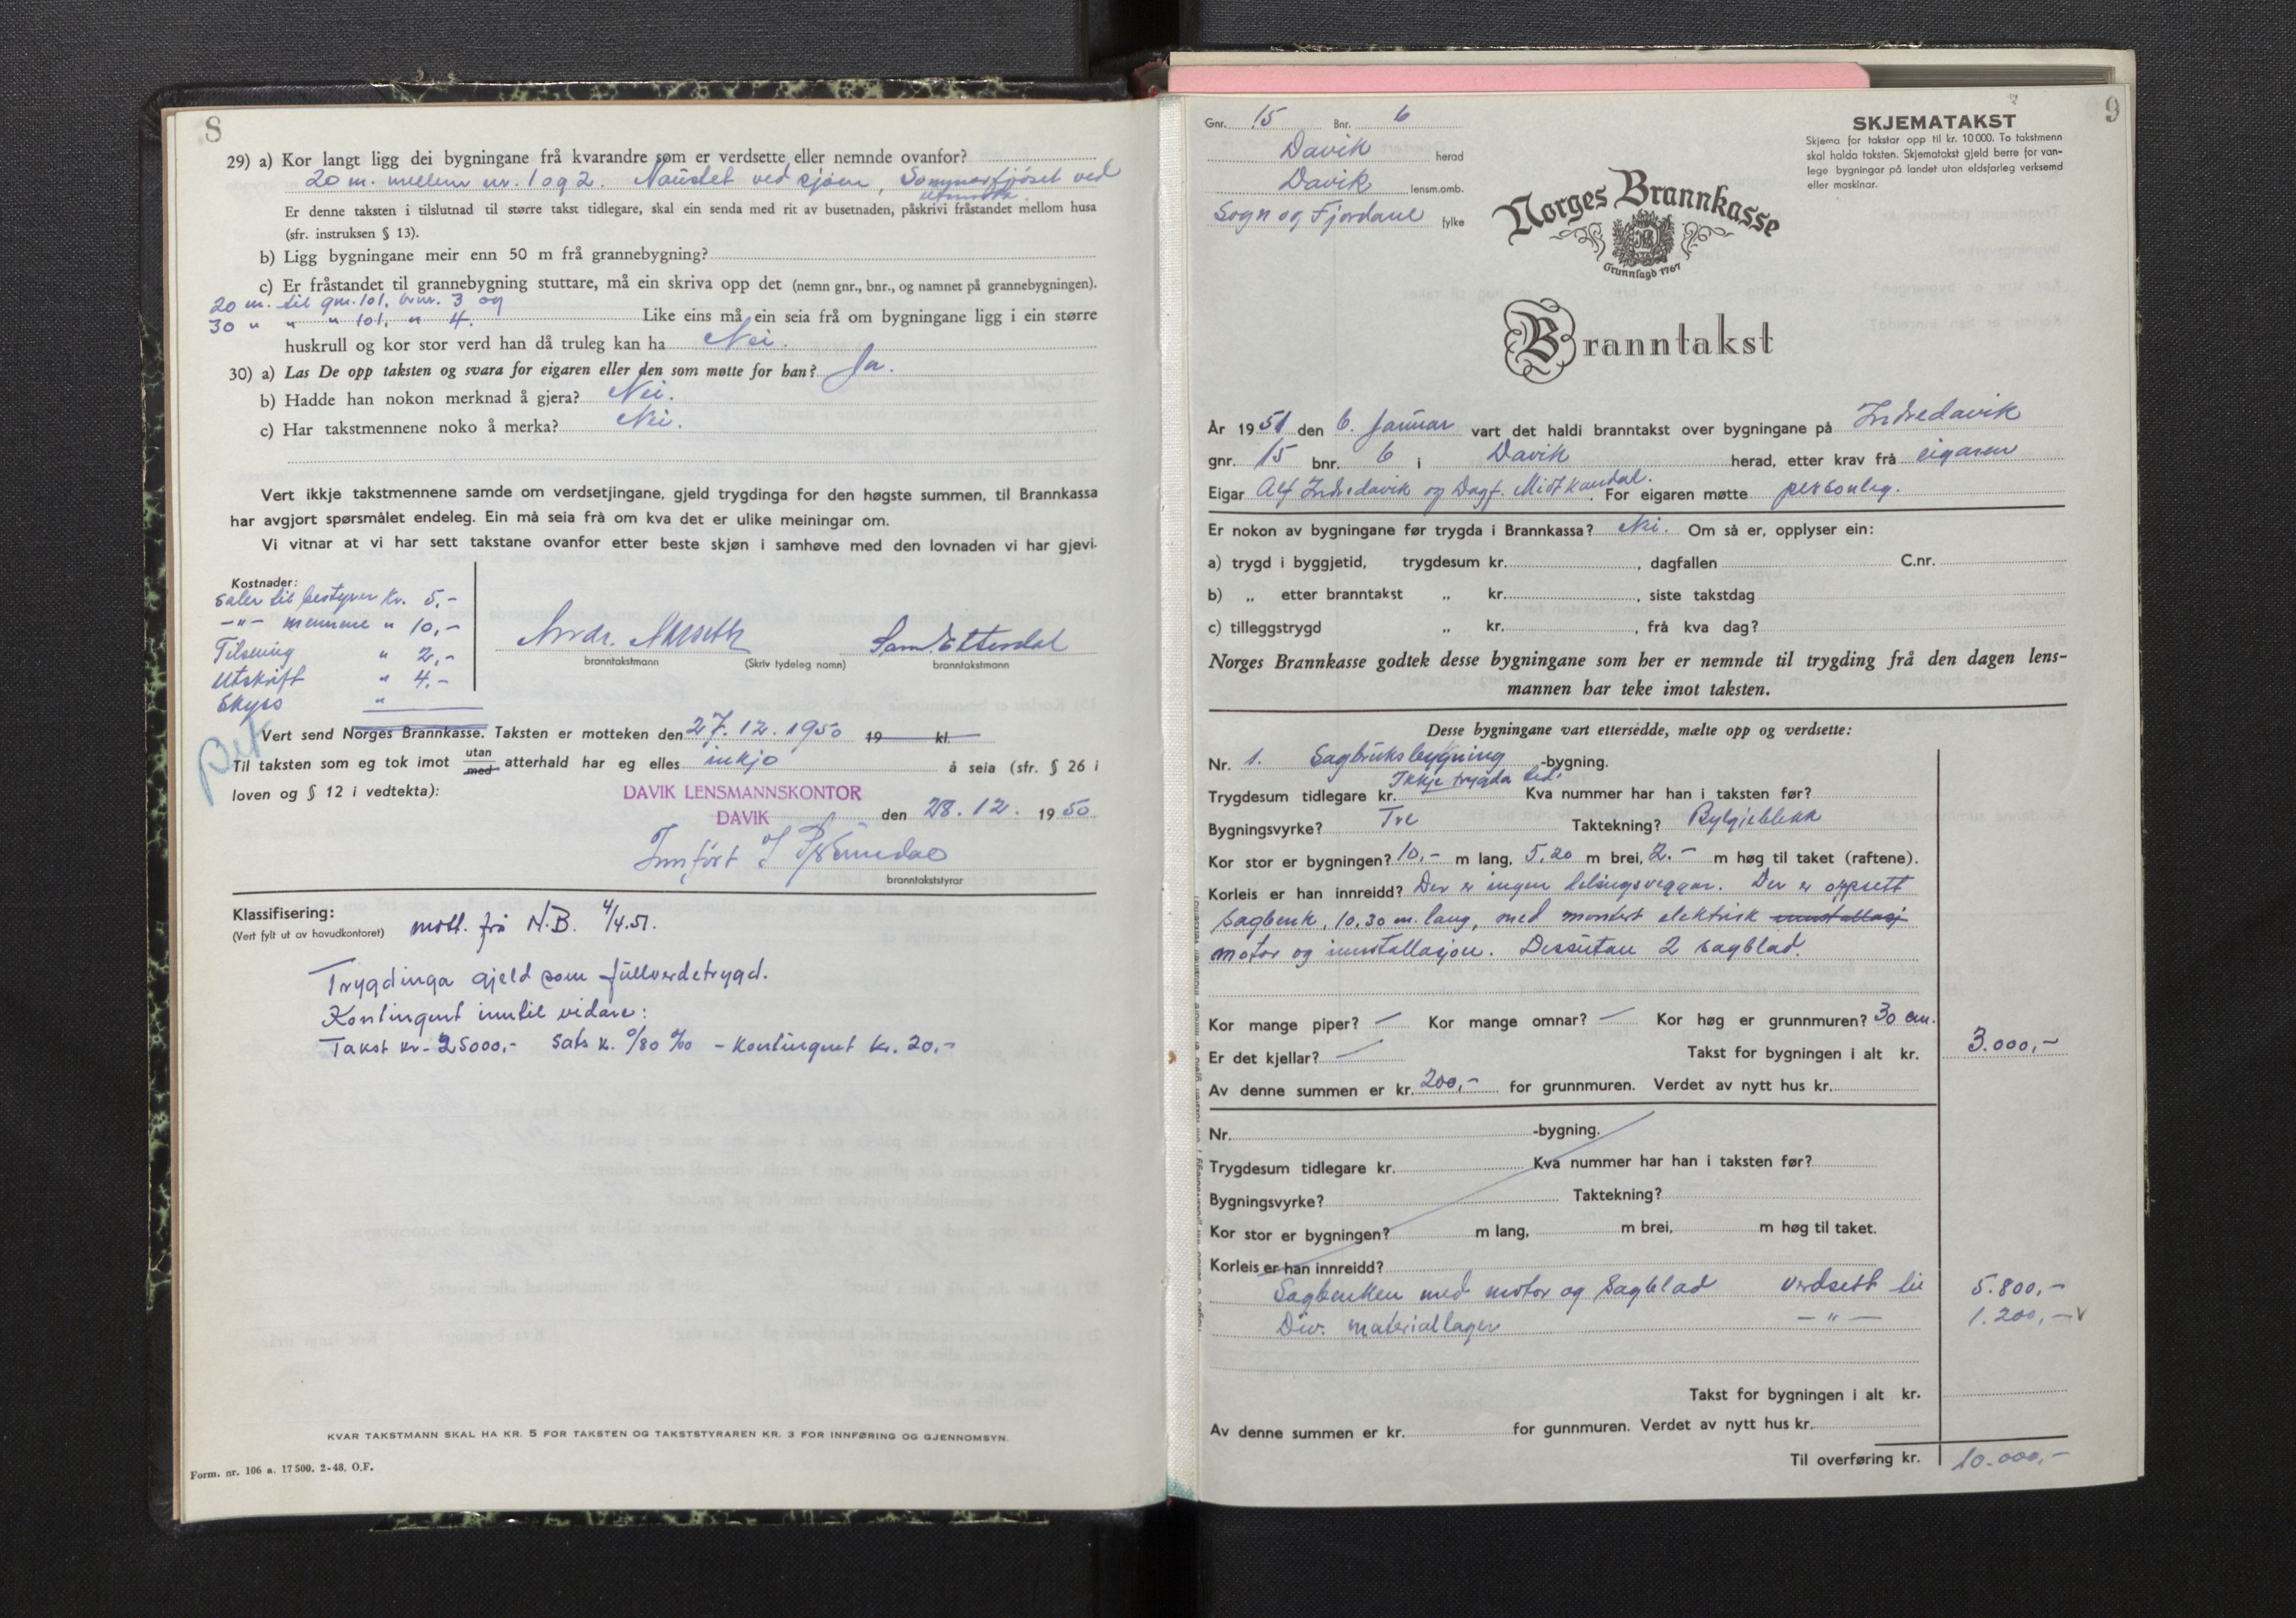 8
29) a) Kor langt ligg dei bygningane frå kvarandre som er verdsette eller nemnde ovanfor?
20 m. mellem nr. 1 og 2. Naustet ved sjøen, Sommarfjøset ved
utmarka
Er denne taksten i tilslutnad til større takst tidlegare, skal ein senda med rit av busetnaden, påskrivi fråstandet mellom husa
(sfr. instruksen § 13).
b) Ligg bygningane meir enn 50 m frå grannebygning?
c) Er fråstandet til grannebygning stuttare, må ein skriva opp det (nemn gnr., bnr., og namnet på grannebygningen).
20 m. til gnr. 101, bnr. 3 og
30 " " " 101, " 4. Like eins må ein seia frå om bygningane ligg i ein større
huskrull og kor stor verd han då truleg kan ha Nei.
30) a) Las De opp taksten og svara for eigaren eller den som møtte for han? Ja.
b) Hadde han nokon merknad å gjera? Nei.
c) Har takstmennene noko å merka? Nei.
Vert ikkje takstmennene samde om verdsetjingane, gjeld trygdinga for den høgste summen, til Brannkassa
har avgjort spørsmålet endeleg. Ein må seia frå om kva det er ulike meiningar om.
Vi vitnar at vi har sett takstane ovanfor etter beste skjøn i samhøve med den lovnaden vi har gjevi.
Kostnader:
Salær til bestyrer kr. 5,-
-"- mennene " 10,-
Tilsening " 2,-
Utskrift " 4.-
Skyss "
Samd. Etterdal
branntakstmann (Skriv tydeleg namn) branntakstmann
Vert send Norges Brannkasse. Taksten er motteken den 27.12.1950 19 kl.
Til taksten som eg tok imot utan med atterhald har eg elles inkjo å seia (sfr. § 26 i
loven og § 12 i vedtekta):
DAVIK LENSMANNSKONTOR
DAVIK den 28.12. 1950
Innført
branntakststyrar
Klassifisering:
(Vert fylt ut av hovudkontoret) mott. frå N.B. 4/4.51.
Trygdinga gjeld som fullverdetrygd.
Kontingent inntil vidare:
Takst kr. 25000,- Sats k. 0/80 ‰ - Kontingent kr. 20,-
KVAR TAKSTMANN SKAL HA KR. 5 FOR TAKSTEN OG TAKSTSTYRAREN KR. 3 FOR INNFØRING OG GJENNOMSYN.
Form. nr. 106 a. 17 500. 2-48. O.F.
9
Gnr. 15 Bnr. 6
Davik herad
Davik lensm.omb.
Sogn og Fjordane fylke
SKJEMATAKST
Skjema for takstar opp til kr. 10 000. To takstmenn
skal halda taksten. Skjematakst gjeld berre for van-
lege bygningar på landet utan eldsfarleg verksemd
eller maskinar.
Norges Brannkasse
Grunnlagd 1767
Branntakst
År 1951 den 6. Januar vart det haldi branntakst over bygningane på Indredavik
gnr. 15 bnr. 6 i Davik herad, etter krav frå eigaren
Eigar Alf Indredavik og Dagf. Midtkandal. For eigaren møtte personleg.
Er nokon av bygningane før trygda i Brannkassa? Nei. Om så er, opplyser ein:
a) trygd i byggjetid, trygdesum kr. , dagfallen C.nr.
b) „ etter branntakst „ kr. , siste takstdag
c) tilleggstrygd „ kr. , frå kva dag?
Norges Brannkasse godtek desse bygningane som her er nemnde til trygding frå den dagen lens-
mannen har teke imot taksten.
Desse bygningane vart ettersedde, mælte opp og verdsette:
Nr. 1. Sagbruksbygning -bygning.
Trygdesum tidlegare kr. Ikkje trygda tid. Kva nummer har han i taksten før?
Bygningsvyrke? Tre Taktekning? Bylgjeblekk
Kor stor er bygningen? 10,- m lang, 5,20 m brei, 2.- m høg til taket (raftene).
Korleis er han innreidd? Der er ingen delingsveggar. Der er oppsett
sagbenk, 10,30 m. lang, med montert elektrisk innstallasj
motor og innstallasjon. Dessutan 2 sagblad.
Kor mange piper? - Kor mange omnar? - Kor høg er grunnmuren? 30 cm.
Er det kjellar? - Takst for bygningen i alt kr. 3.000,-
Av denne summen er kr. 200,- for grunnmuren. Verdet av nytt hus kr.
Nr. -bygning.
Trygdesum tidlegare kr. Kva nummer har han i taksten før?
Bygningsvyrke? Taktekning?
Kor stor er bygningen? m lang, m brei, m høg til taket.
Korleis er han innreidd?
Sagbenken med motor og Sagblad verdsett til 5.800,-
Div. materiallager -"- 1.200,-
Takst for bygningen i alt kr.
Av denne summen er kr. for gunnmuren. Verdet av nytt hus kr.
Til overføring kr. 10.000,-